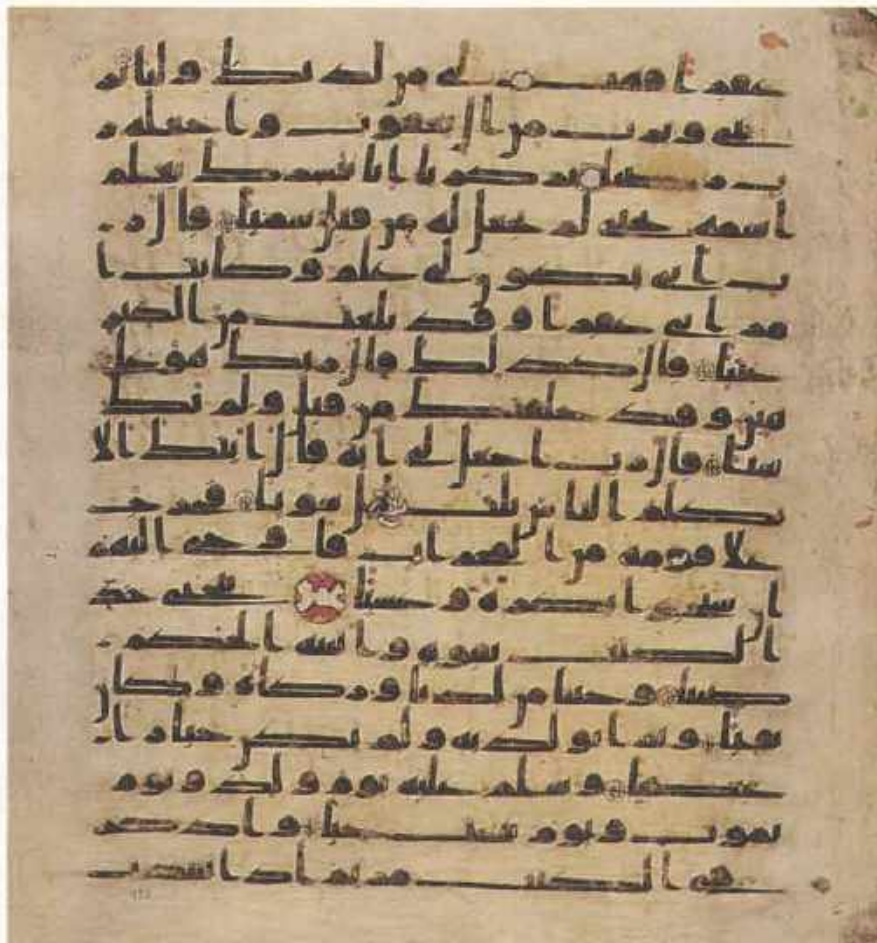 عقرا فهب لي من لدنك وليا ير
ثني ويرث من ال يعقوب واجعله ر
ب رضيا يزكريا انا نبشرك بغلم
اسمه يحيى لم نجعل له من قبل سميا قال ر
ب انى يكون لي غلم وكانت ا
مراتي عقرا وقد بلغت من الكبر
عتيا قال كذلك قال ربك هو علي
هين وقد خلقتك من قبل ولم تك
شيا قال رب اجعل لي اية قال ايتك الا
تكلم الناس ثلث ليل سويا فخرج
على قومه من المحراب فاوحى اليهم
ان سبحوا بكرة وعشيا ييحيى خذ
الكتب بقوة واتينه الحكم
صبيا وحنانا من لدنا وزكاة وكان
تقيا وبرا بولديه ولم يكن جبارا
عصيا وسلم عليه يوم ولد ويوم
يموت ويوم يبعث حيا واذكر
في الكتب مريم اذ انتبذت